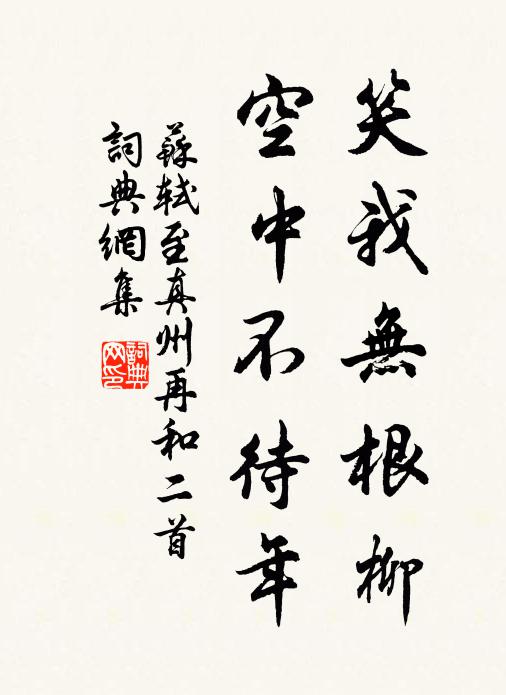 笑我無根柳
空中不待年
蘇軾至真州再和二首
詞典網集
詞典网印